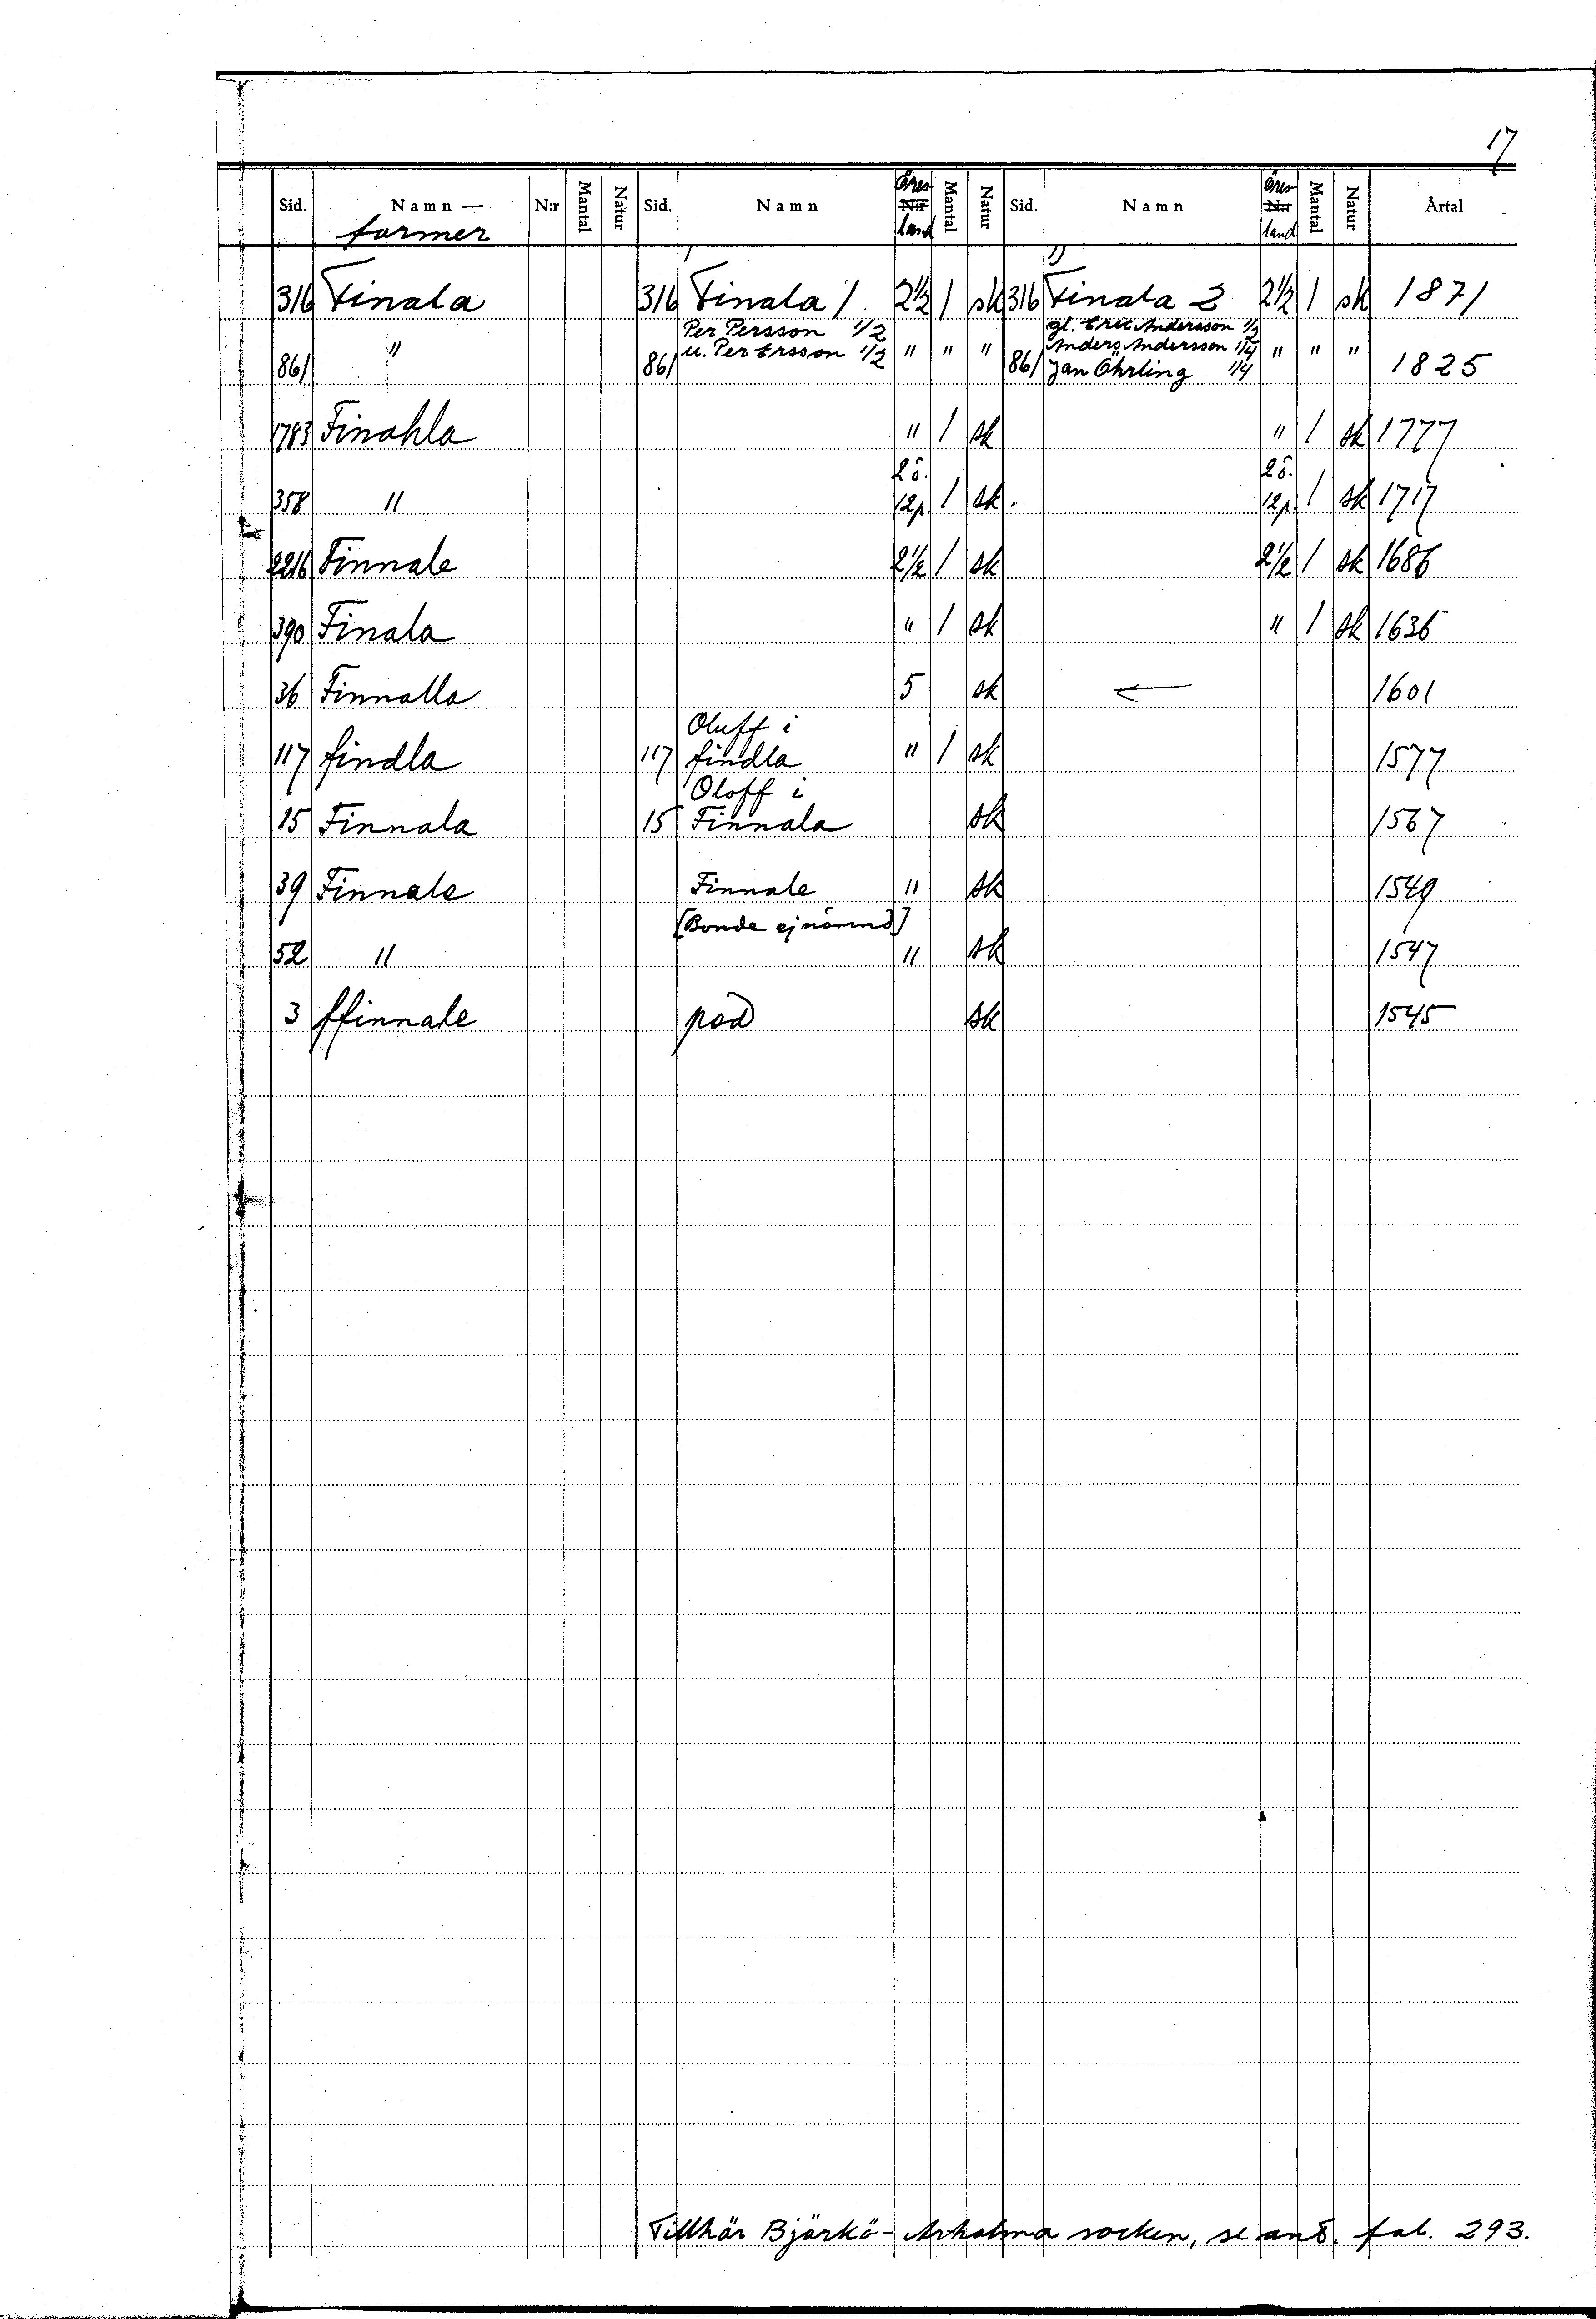 17
Sid. Namn — N:r Mantal Natur Sid. Namn Öres- N:r land Mantal Natur Sid. Namn Öres- N:r land Mantal Natur Årtal
former
1)
316 Finala 316 Finala 1 2½ 1 sk 316 Finala 2 2½ 1 sk 1871
Per Persson 1/2 gl. Eric Andersson 1/2
u. Per Ersson 1/2 Anders Andersson 1/4
861 " 861 " " " 861 Jan Öhrling 1/4 " " " 1825
1783 Finahla " 1 sk " 1 sk 1777
2ö. 2ö.
358 " 12p. 1 sk. 12p. 1 sk 1717
2216 Finnale 2½ 1 sk 2½ 1 sk 1686
390 Finala " 1 sk " 1 sk 1636
36 Finnalla 5 sk ← 1601
Oluff i
117 findla 117 findla " 1 sk 1577
Oloff i
15 Finnala 15 Finnala sk 1567
39 Finnale Finnale " sk 1549
[Bonde ej nämnd]
52 " " sk 1547
3 ffinnale pod sk 1545
Tillhör Björkö-Arholma socken, se ant. fol. 293.